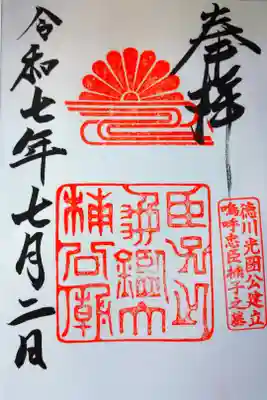 奉拝
徳川光圀公建立
嗚呼忠臣楠子之墓
臣子之
鑑大
楠公廟
令和七年七月二日